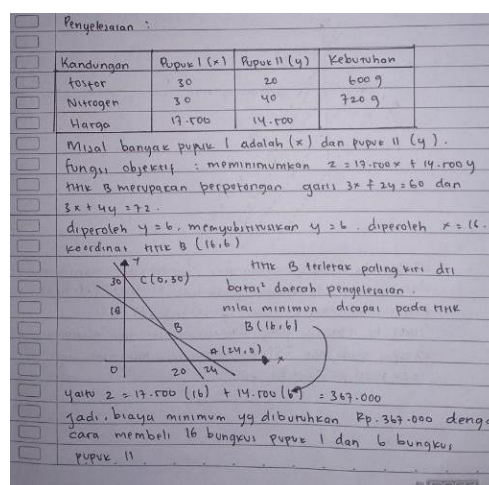 Penyelesaian :
Kandungan Pupuk I (x) Pupuk II (y) Kebutuhan
fosfor 30 20 600 g
Nitrogen 30 40 720 g
Harga 17.500 14.500
Misal banyak pupuk I adalah (x) dan pupuk II (y).
fungsi objektif : meminimumkan z = 17.500x + 14.500y
titik B merupakan perpotongan garis 3x + 2y = 60 dan
3x + 4y = 72.
diperoleh y = 6. mensubstitusikan y = 6. diperoleh x = 16.
koordinat titik B (16,6)
Y
30 C(0,30)
18
B
A(24,0)
x
0 20 24
titik B terletak paling kiri dri
batas² daerah penyelesaian.
nilai minimun dicapai pada titik
B(16,6)
yaitu z = 17.500 (16) + 14.500 (6) = 367.000
Jadi, biaya minimum yg dibutuhkan Rp. 367.000 deng
cara membeli 16 bungkus pupuk I dan 6 bungkus
pupuk II